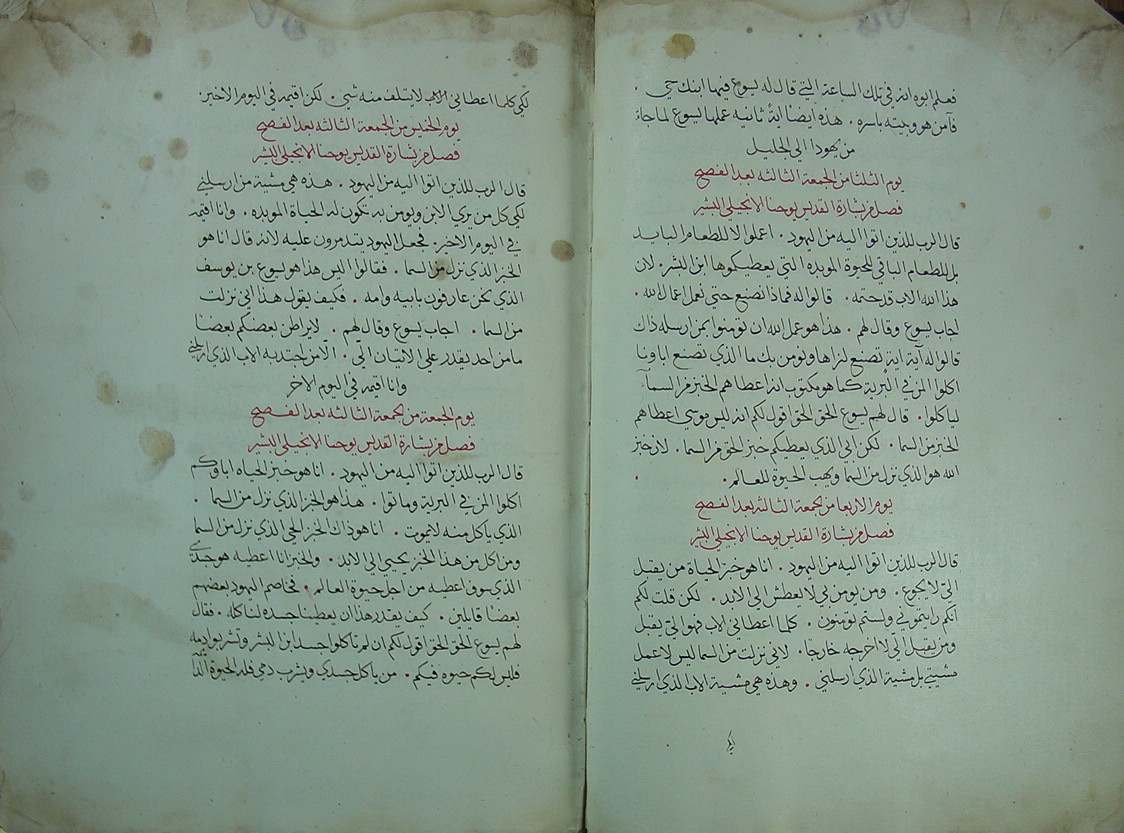 فعلم ابوه انه في تلك الساعة التي قال له يسوع فيها ابنك حي .
فآمن هو وبيته باسره . هذه ايضا اية ثانيه عملها يسوع لما جاء
من يهودا الي الجليل
يوم الثلثا من الجمعة الثالثه بعد الفصح
فصل من بشارة القديس يوحنا الانجيلي البشر
قال الرب للذين اتوا اليه من اليهود . اعملوا لا للطعام البايد
بل للطعام الباقي للحيوة الموبده التي يعطيكموها ابن البشر . لان
هذا الله الاب قد ختمه . قالوا له فماذا نصنع حتي نعمل اعمال الله .
اجاب يسوع وقال لهم . هذا هو عمل الله ان تومنوا بمن ارسله ذاك
قالوا له آية اية تصنع لنراها ونومن بك ما الذي تصنع اباونا
اكلوا المن في البرية كما هو مكتوب انه اعطاهم الخبز من السمآ
لياكلوا . قال لهم يسوع الحق الحق اقول لكم انه ليس موسي اعطاهم
الخبز من السما . لكن ابي الذي يعطيكم خبز الحق من السما . لان خبز
الله هو الذي نزل من السما ويهب الحيوة للعالم .
يوم الاربعا من الجمعة الثالثه بعد الفصح
فصل من بشارة القديس يوحنا الانجيلي البشر
قال الرب للذين اتوا اليه من اليهود . انا هو خبز الحياة من يقبل
الي لا يجوع . ومن يومن بي لا يعطش الي الابد . لكن قلت لكم
انكم رايتموني ولستم تومنون . كلما اعطاني الاب فهو الي يقبل
ومن يقبل الي لا اخرجه خارجا . لاني نزلت من السما ليس لاعمل
مشيتي بل مشية الذي ارسلني . وهذه هي مشية الاب الذي ارسلني
لكي كلما اعطاني الاب لا يتلف منه شي . لكن اقيمه في اليوم الاخير .
يوم الخميس من الجمعة الثالثه بعد الفصح
فصل من بشارة القديس يوحنا الانجيلي البشر
قال الرب للذين اتوا اليه من اليهود . هذه هي مشية من ارسلني
لكي كل من يري الابن ويومن به تكون له الحياة الموبده . وانا اقيمه
في اليوم الاخر . فجعل اليهود يتدمرون عليه لانه قال انا هو
الخبز الذي نزل من السما . فقالوا اليس هذا هو يسوع بن يوسف
الذي نحن عارفون بابيه وامه . فكيف يقول هذا اني نزلت
من السما . اجاب يسوع وقال لهم . لا يراطن بعضكم بعضا
ما من احد يقدر علي الاتيان الي . الا من اجتدبه الاب الذي ارسلني
وانا اقيمه في اليوم الاخر
يوم الجمعة من الجمعة الثالثه بعد الفصح
فصل من بشارة القديس يوحنا الانجيلي البشير
قال الرب للذين اتوا اليه من اليهود . انا هو خبز الحياه اباوكم
اكلوا المن في البرية وماتوا . هذا هو الخبز الذي نزل من السما .
الذي ياكل منه لا يموت . انا هو ذاك الخبز الحي الذي نزل من السما
ومن اكل من هذا الخبز يحيي الي الابد . والخبز انا اعطيه هو جسدي
الذي سوف اعطيه من اجل حيوة العالم . فخاصم اليهود بعضهم
بعضا قايلين . كيف يقدر هذا ان يعطينا جسده لناكله . فقال
لهم يسوع الحق الحق اقول لكم ان لم تاكلوا جسد ابن البشر وتشربوا دمه
فليس لكم حيوه فيكم . من ياكل جسدي ويشرب دمي فله الحيوة